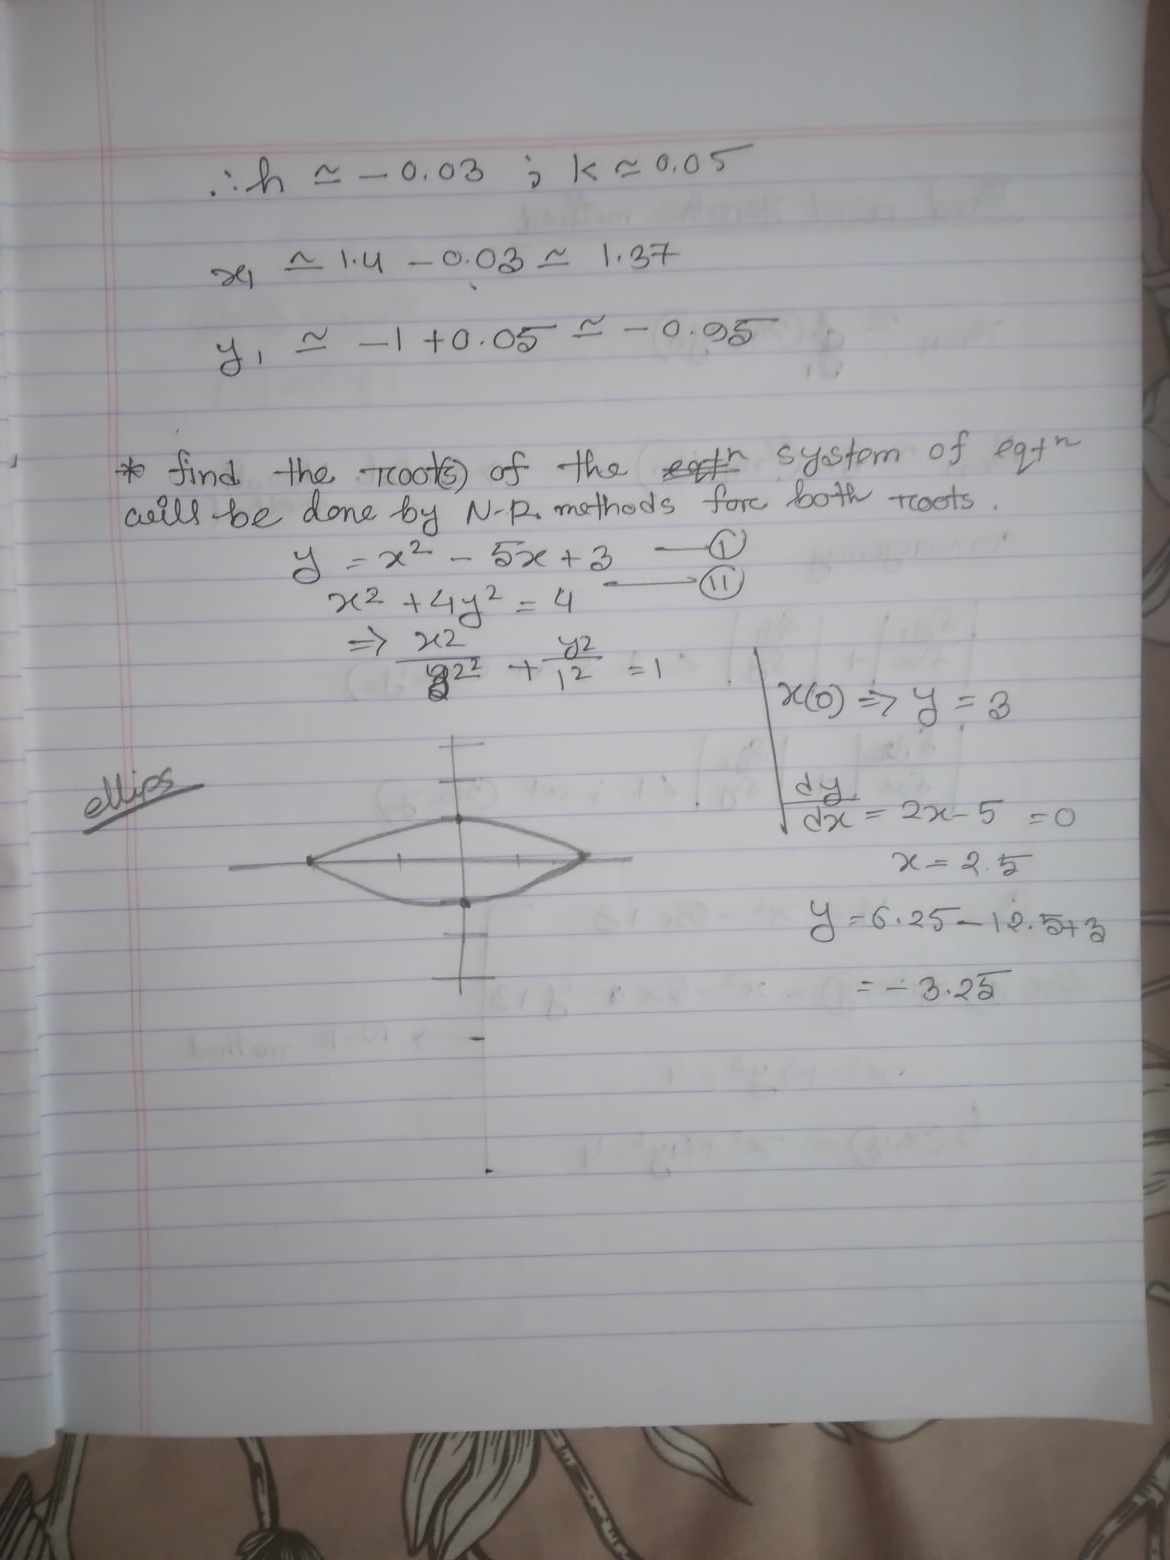 ∴ h ≃ -0.03 ; k ≃ 0.05
x₁ ≃ 1.4 - 0.03 ≃ 1.37
y₁ ≃ -1 + 0.05 ≃ -0.95
* find the root(s) of the eqtn system of eqtn
will be done by N-R. methods for both roots.
y = x² - 5x + 3 — (I)
x² + 4y² = 4 — (II)
⇒ x²/2² + y²/1² = 1
x(0) ⇒ y = 3
ellips
dy/dx = 2x - 5 = 0
x = 2.5
y = 6.25 - 12.5 + 3
= -3.25